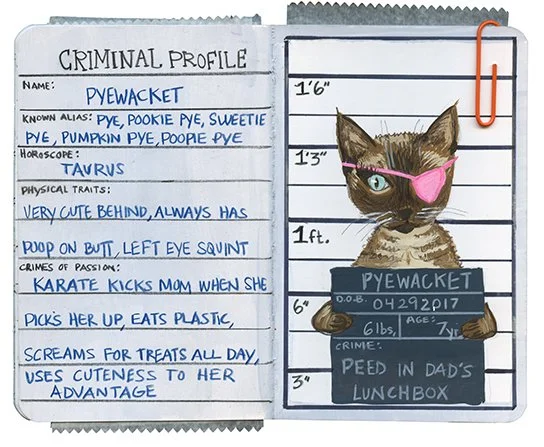 CRIMINAL PROFILE
NAME:
PYEWACKET
KNOWN ALIAS: PYE, POOKIE PYE, SWEETIE
PYE, PUMPKIN PYE, POOPIE PYE
HOROSCOPE:
TAURUS
PHYSICAL TRAITS:
VERY CUTE BEHIND, ALWAYS HAS
POOP ON BUTT, LEFT EYE SQUINT
CRIMES OF PASSION:
KARATE KICKS MOM WHEN SHE
PICK'S HER UP, EATS PLASTIC,
SCREAMS FOR TREATS ALL DAY,
USES CUTENESS TO HER
ADVANTAGE
1'6"
1'3"
1ft.
6"
3"
PYEWACKET
D.O.B. 04292017
6lbs, AGE: 7yr.
CRIME:
PEED IN DAD'S
LUNCHBOX